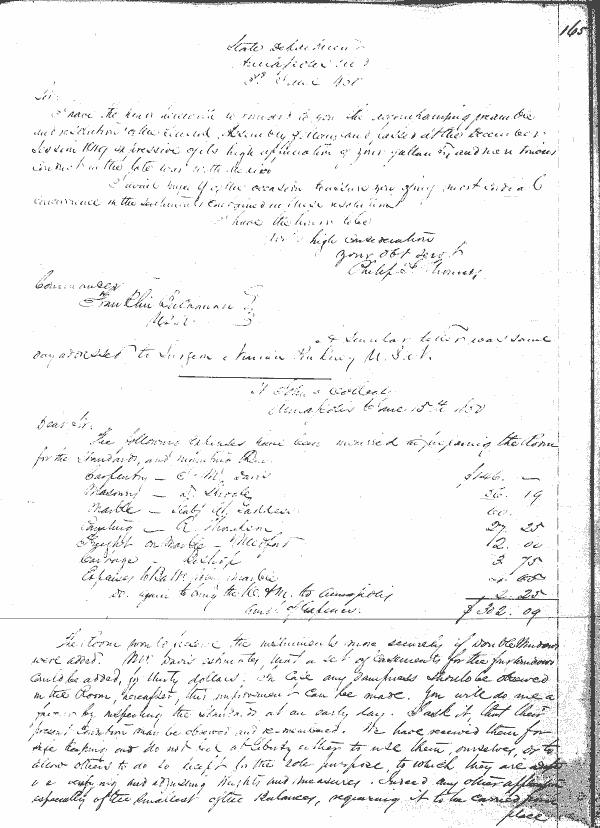 165
State Department
Annapolis Md
3rd June 1850
Sir,
I have the honor herewith to transmit to you the accompanying preamble
and resolution of the General Assembly of Maryland, passed at the December
Session 1849 expressive of its high appreciation of your gallantry and meritorious
conduct in the late war with Mexico
I avail myself of the occasion to assure you of my most cordial
concurrence in the sentiments contained in these resolutions
I have the honor to be
With high consideration
your Obt Servt
Philip F. Thomas
Commander
Franklin Buchanan
U.S.N.
A similar letter was same
day addressed to Surgeon Ninian Pinkney U.S.N.
St John's College
Annapolis June 15th 1850
Dear Sir,
The following expenses have been incurred in preparing the Room
for the Standards, and mounting them
Carpentry — Davis $146. —
Masonry — 36. 19
Marble — Slabs 60.
Painting — R. 27. 25
Freight on Marble — 12. 00
Carriage 3. 75
Expenses to Balt. marble
Do. again to bring the to Annapolis 2. 25
Amt. of Expenses. $302. 09
The Room would preserve the instruments more securely if double Windows
were added. Mr Davis estimates, that a set of casements for the four windows
could be added, for thirty dollars. In case any dampness should be observed
in the Room, hereafter, this improvement can be made. You will do me a
favor by inspecting the standards at an early day. I ask it, that their
present condition may be observed and remembered. We have received them for
safe keeping and do not feel at liberty either to use them, ourselves, or to
allow others to do so except for the sole purpose, to which they are
verifying and adjusting Weights and measures. Indeed any other
especially of the smallest of the Balances, requiring it to be carried from
place